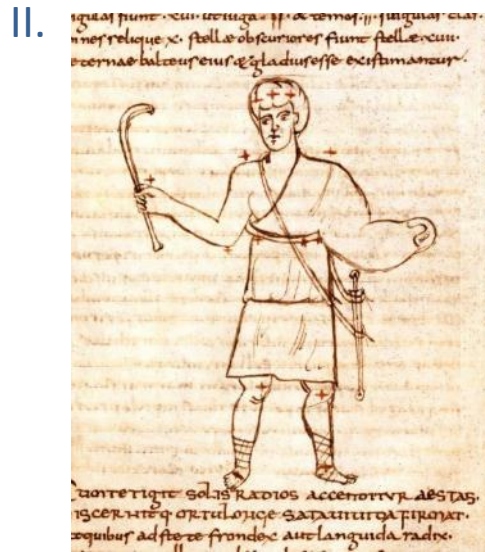 II.
fiunt · xui · ut iuga · II · & temos · II · singulas clar·
nnes relique x· stellae obscuriores fiunt stellae · xuii·
eternae balteus eius & gladius esse existimantur·
tetigit SOLIS RADIOS ACCENDITVR AESTAS·
ISCERNITQ ORTU LONGE SATA UIUIDA FIRMAT·
quibus frondex aut languida radix·